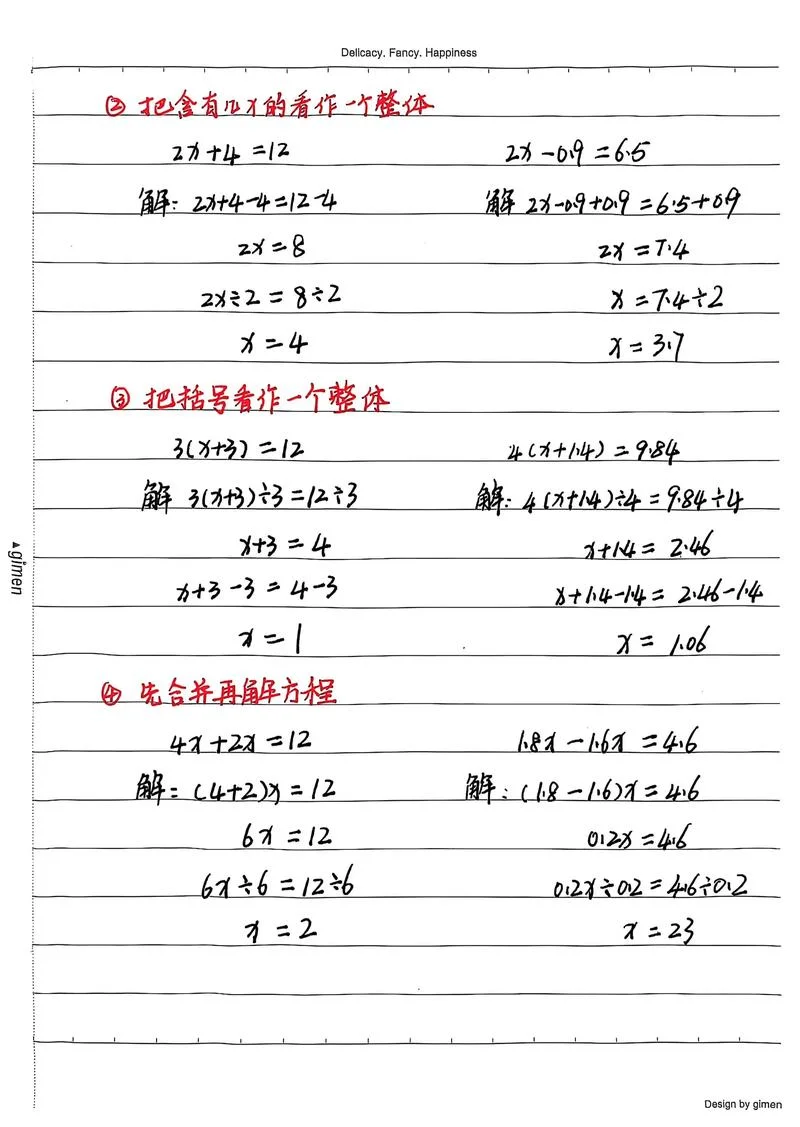 Delicacy. Fancy. Happiness
② 把含有几x的看作一个整体
2x+4=12
2x-0.9=6.5
解: 2x+4-4=12-4
解 2x-0.9+0.9=6.5+0.9
2x=8
2x=7.4
2x÷2=8÷2
x=7.4÷2
x=4
x=3.7
③ 把括号看作一个整体
3(x+3)=12
4(x+1.4)=9.84
解 3(x+3)÷3=12÷3
解: 4(x+1.4)÷4=9.84÷4
x+3=4
x+1.4=2.46
x+3-3=4-3
x+1.4-1.4=2.46-1.4
x=1
x=1.06
gimen
④ 先合并再解方程
4x+2x=12
1.8x-1.6x=4.6
解: (4+2)x=12
解: (1.8-1.6)x=4.6
6x=12
0.2x=4.6
6x÷6=12÷6
0.2x÷0.2=4.6÷0.2
x=2
x=23
Design by gimen